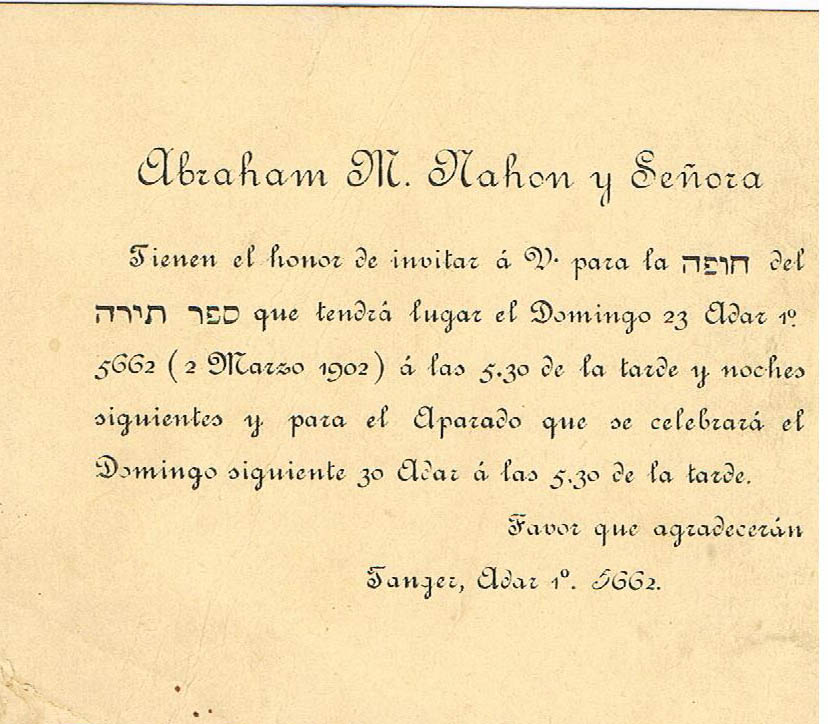 Abraham M. Nahon y Señora
Tienen el honor de invitar á V. para la חופה del
ספר תירה que tendrá lugar el Domingo 23 Adar 1º.
5662 (2 Marzo 1902) á las 5.30 de la tarde y noches
siguientes y para el Aparado que se celebrará el
Domingo siguiente 30 Adar á las 5.30 de la tarde.
Favor que agradecerán
Tanger, Adar 1º. 5662.